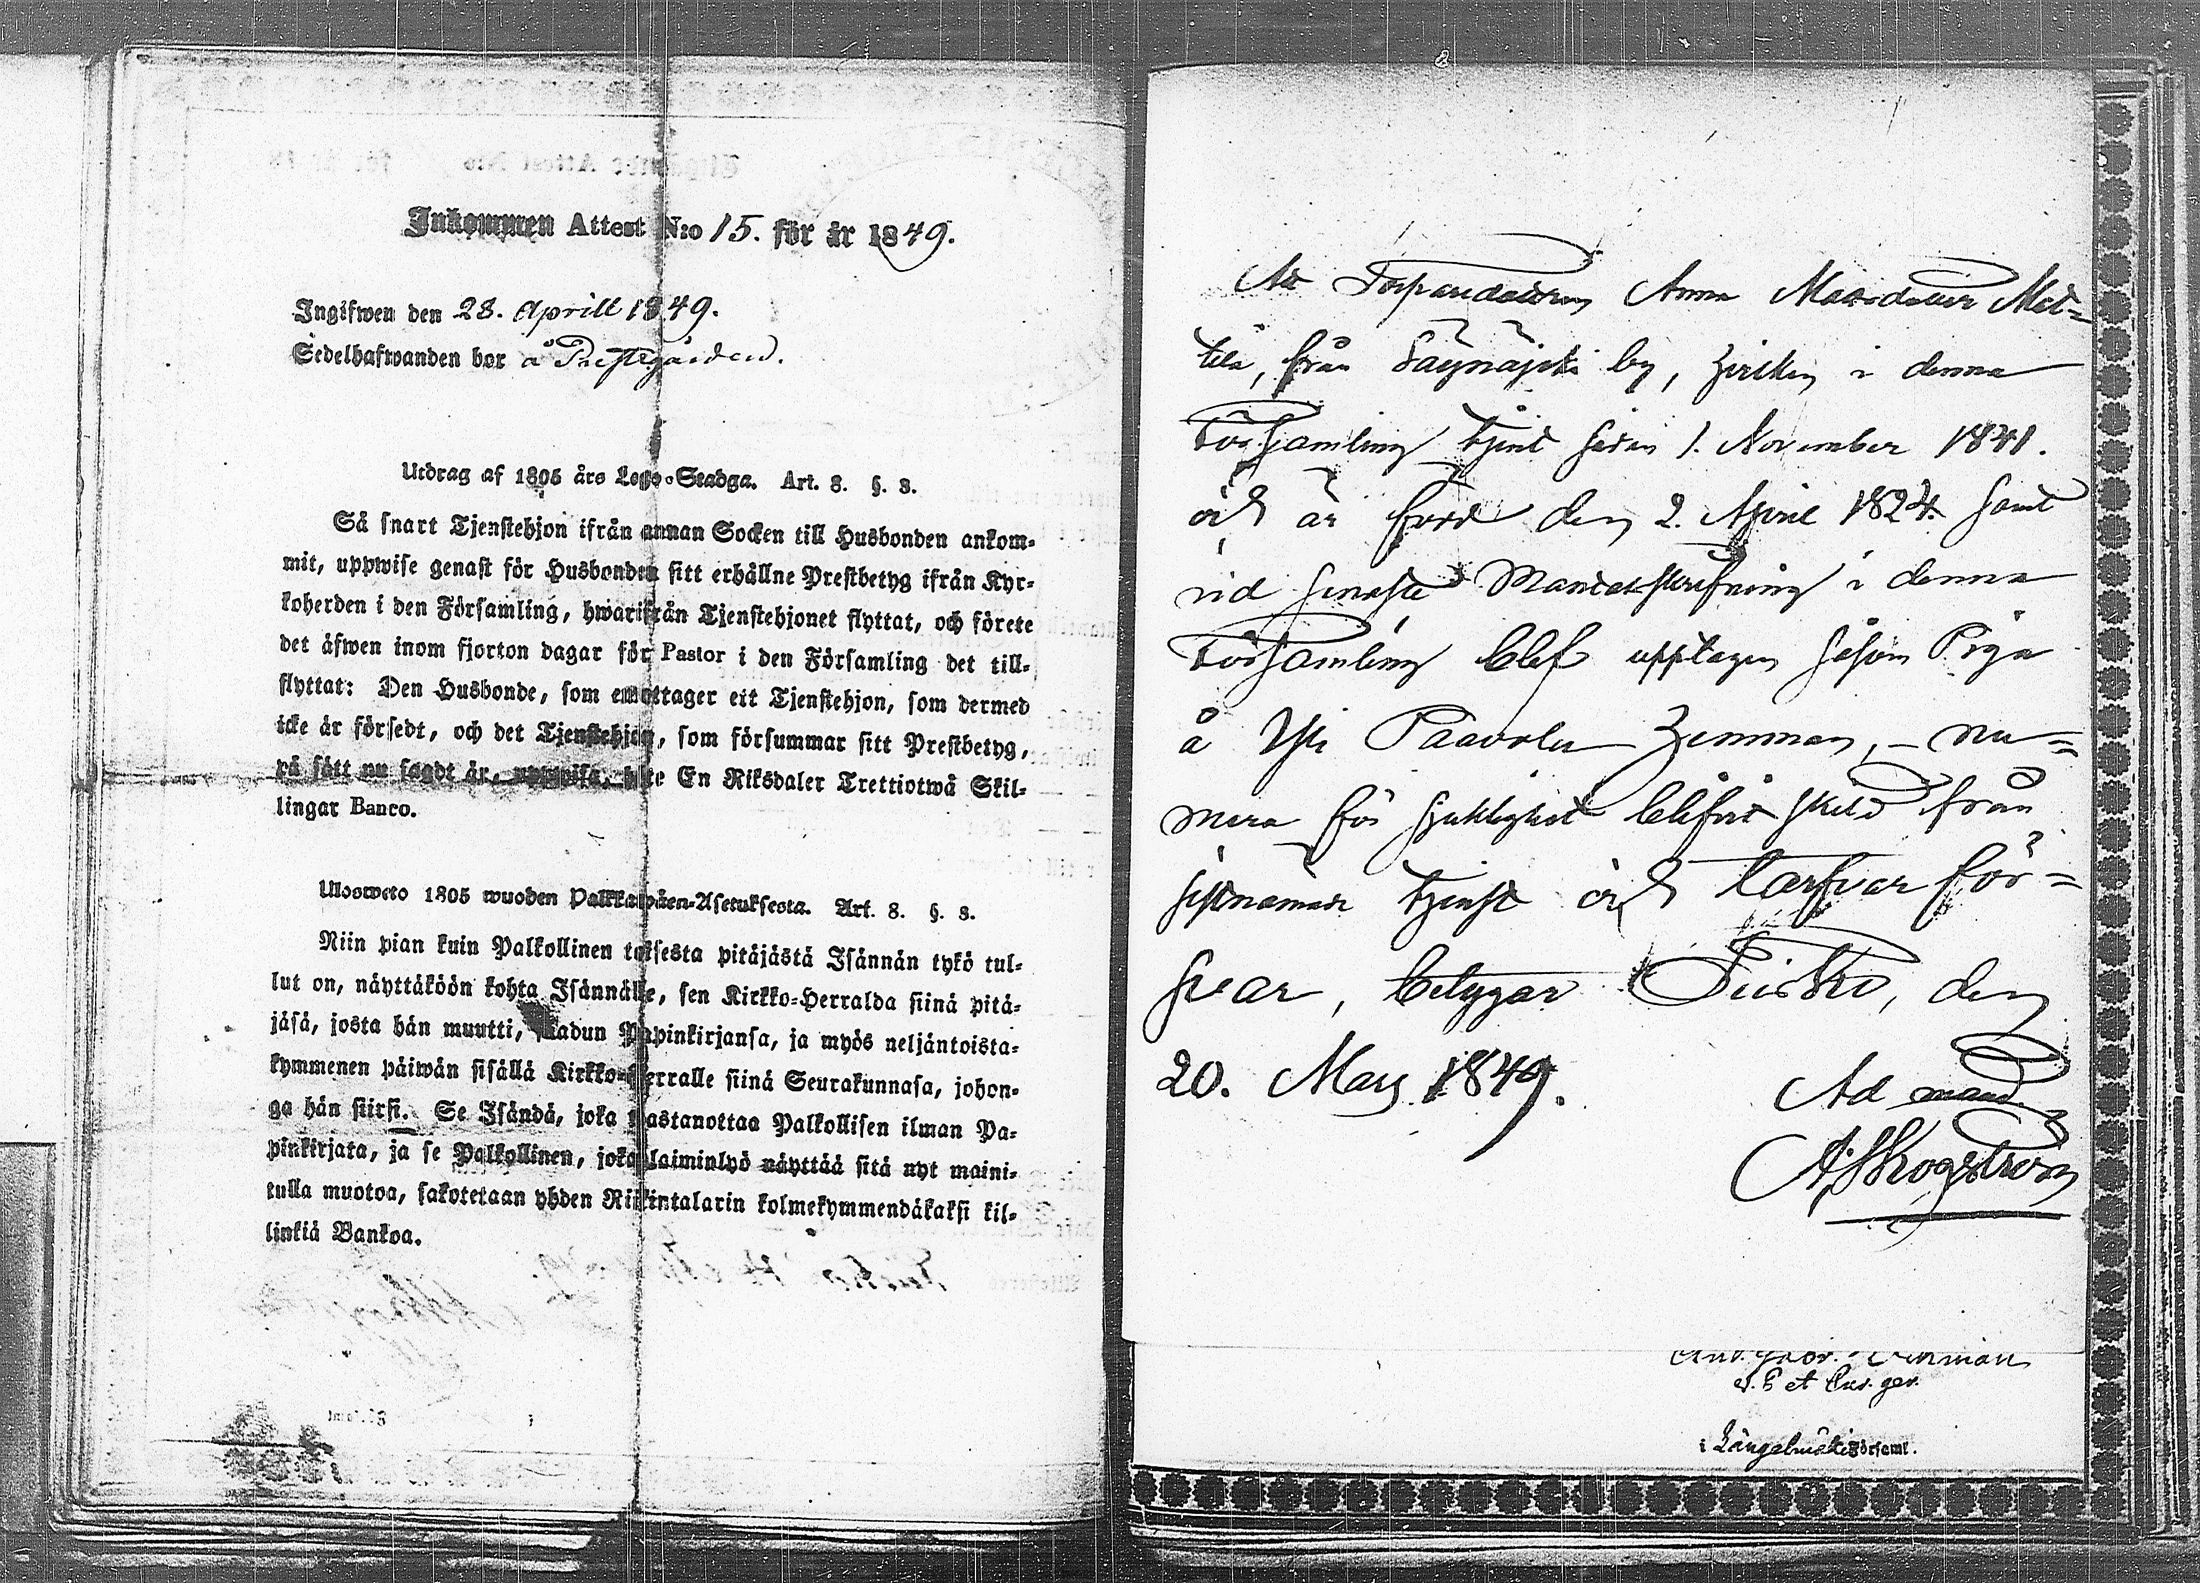 Inkommen Attest N:o 15. för år 1849.
Ingifwen den 28. Aprill 1849.
Sedelhafwanden bor å Prestgården.
Utdrag af 1805 års Lego-Stadga. Art. 8. §. 3.
Så snart Tjenstehjon ifrån annan Socken till Husbonden ankom-
mit, uppwise genast för Husbonden sitt erhållne Prestbetyg ifrån Kyr-
koherden i den Församling, hwarifrån Tjenstehjonet flyttat, och förete
det äfwen inom fjorton dagar för Pastor i den Församling det till-
flyttat: Den Husbonde, som emottager ett Tjenstehjon, som dermed
icke är försedt, och det Tjenstehjon, som försummar sitt Prestbetyg,
på sätt nu sagdt är, uppwisa, böte En Riksdaler Trettiotwå Skil-
lingar Banco.
Ulosweto 1805 wuoden Palkkawäen-Asetuksesta. Art. 8. §. 3.
Niin pian kuin Palkollinen toisesta pitäjästä Isännän tykö tul-
lut on, näyttäköön kohta Isännälle, sen Kirkko-Herralda siinä pitä-
jäsä, josta hän muutti, saadun Papinkirjansa, ja myös neljäntoista-
kymmenen päiwän sisällä Kirkko-Herralle siinä Seurakunnasa, johon-
ga hän siirsi. Se Isändä, joka wastanottaa Palkollisen ilman Pa-
pinkirjata, ja se Palkollinen, joka laiminlyö näyttää sitä nyt maini-
tulla muotoa, sakotetaan yhden Riikintalarin kolmekymmendäkaksi kil-
linkiä Bankoa.
Att Torparedottren Anna Matsdotter Met-
tälä, från Säynäjoki by, i denna
Församling tjent sedan 1. November 1841.
och är född den 2. April 1824. samt
vid senaste Mantalsskrifning i denna
Församling blef upptagen såsom Piga
å Yli Paavola hemman, – nu-
mera för sjuklighet blifvit skild från
sistnämde tjenst och tarfvar för-
svar, betygar Tuisko, den
20. Mars 1849.
Ad mand.
A. Skogström
e. P. et
i Längelmäki Församl.